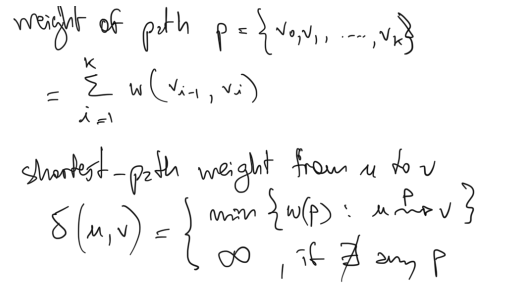 weight of path p = {v₀,v₁, ....., vₖ}
= ∑_{i=1}^{k} w(v_{i-1}, v_i)
shortest-path weight from u to v
δ(u,v) = { min {w(p) : u ⇝^p v}
∞ , if ∄ any p